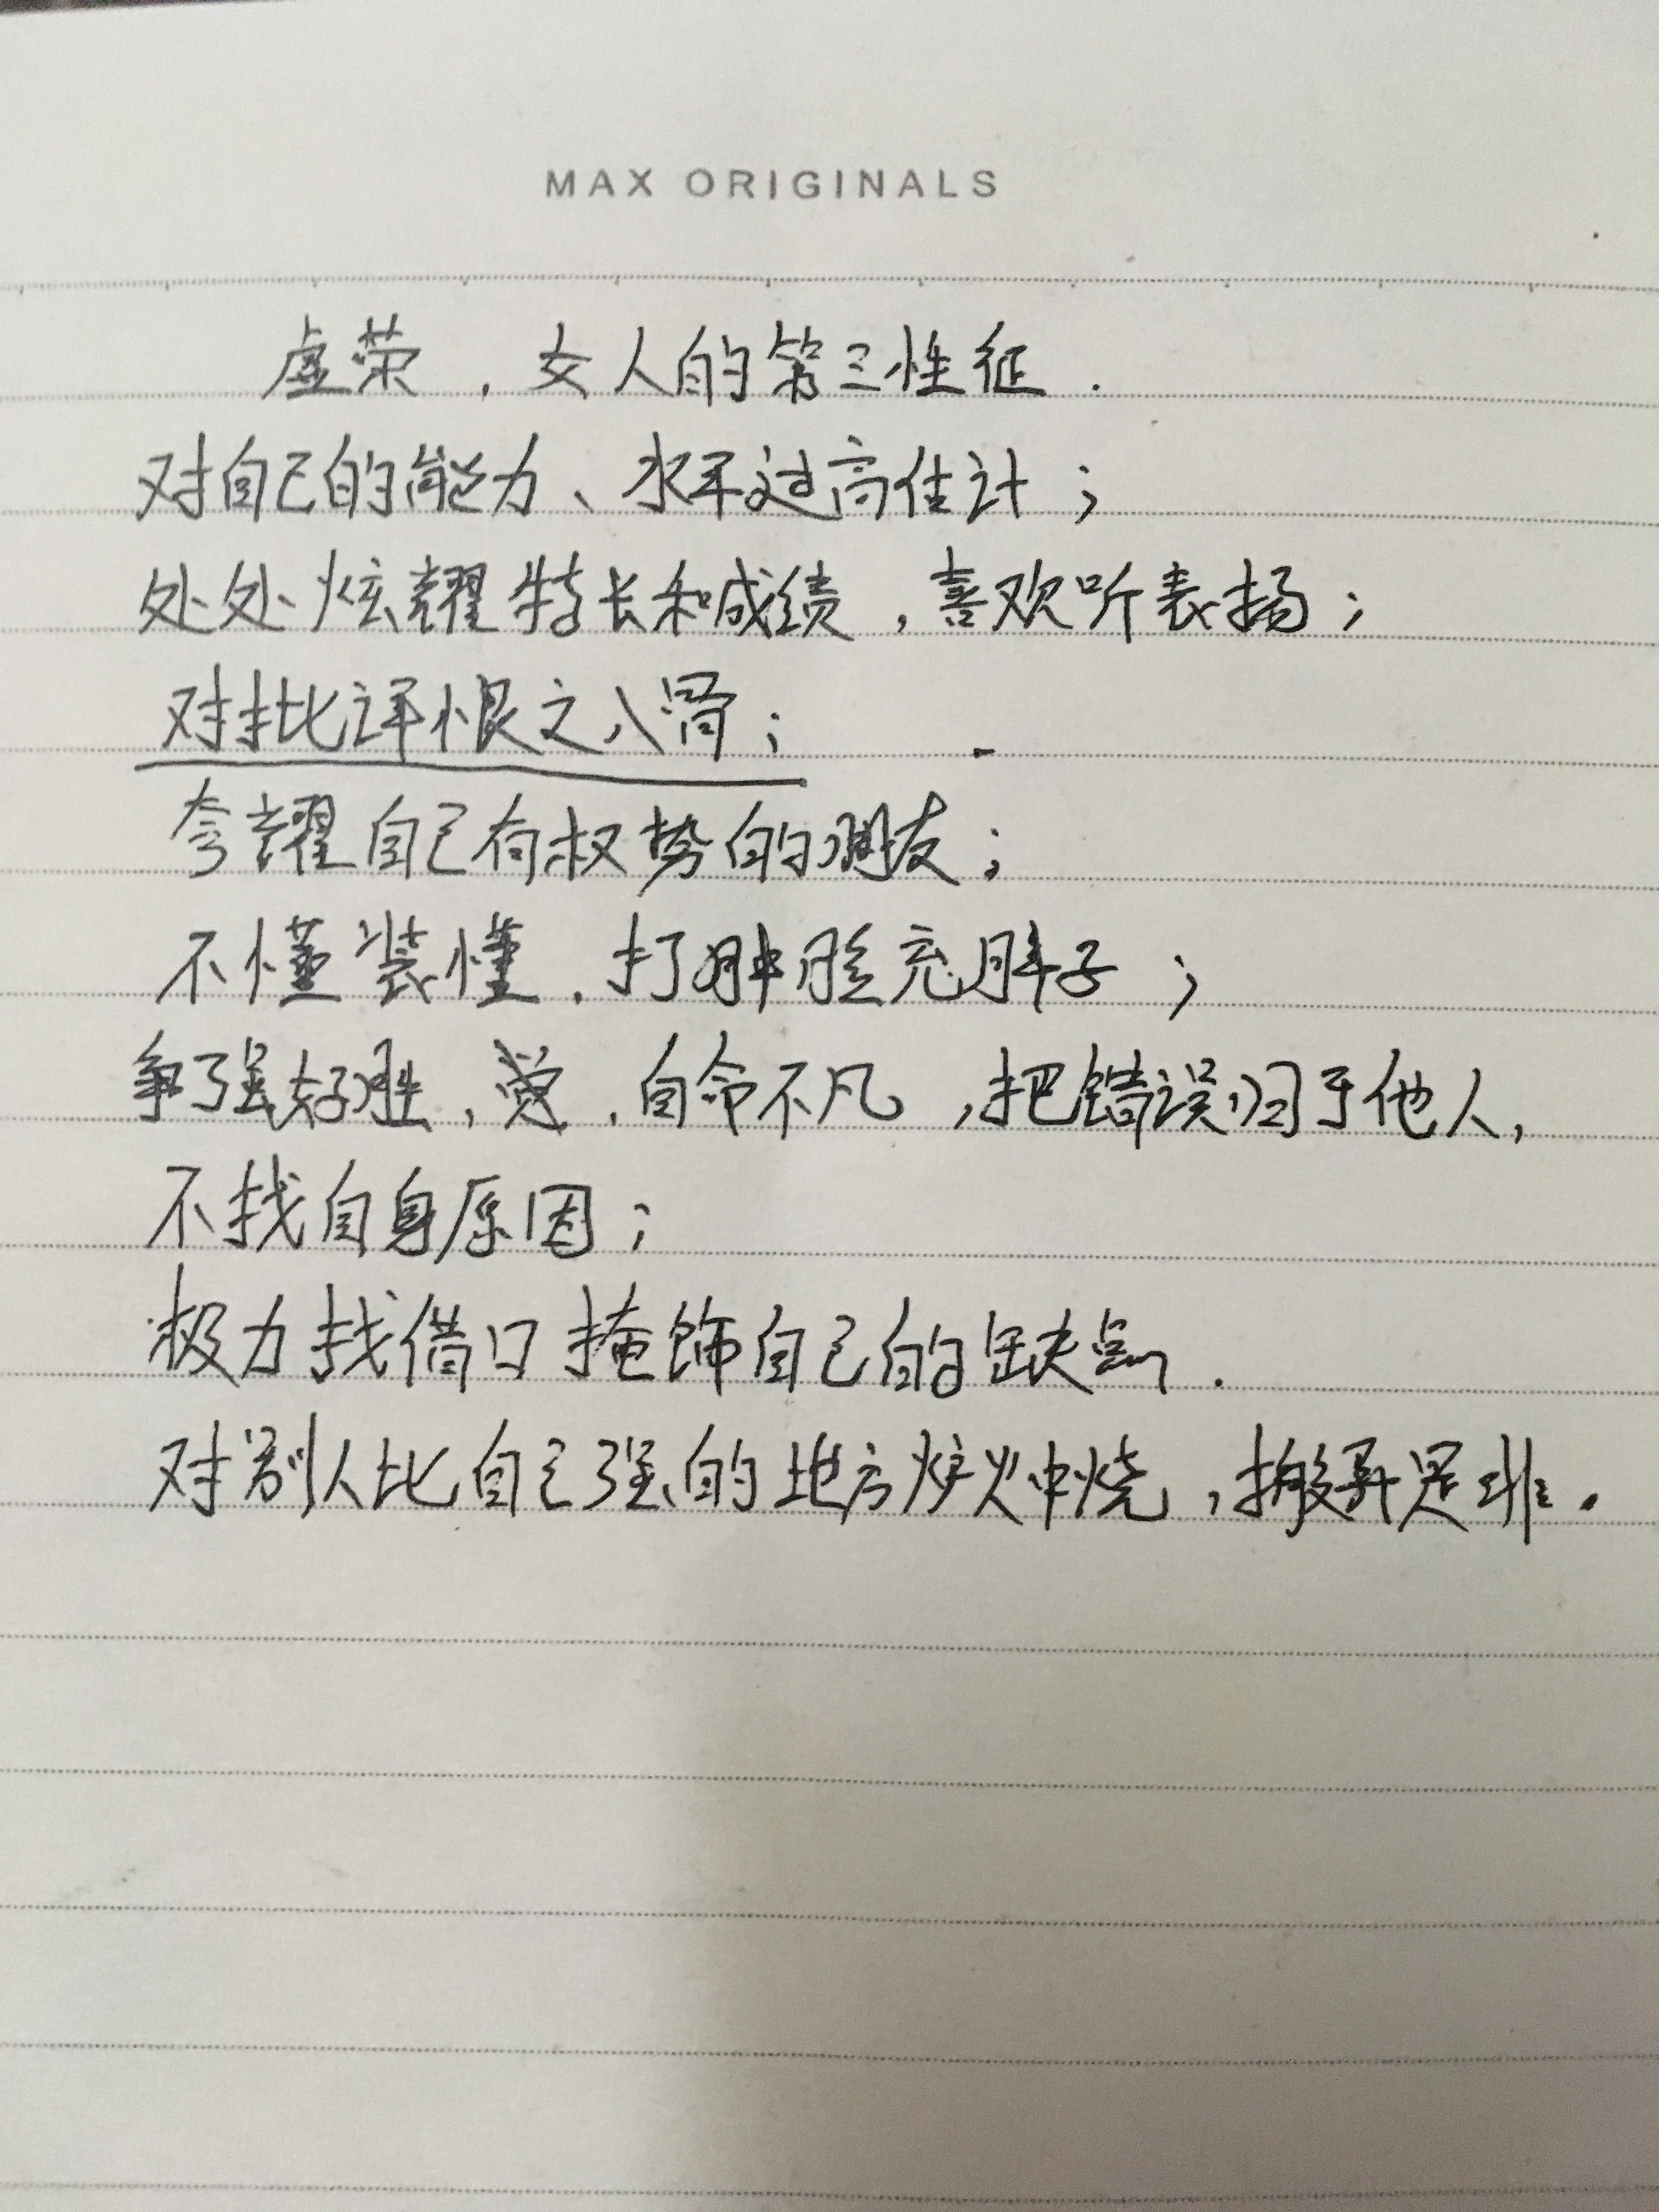 MAX ORIGINALS
虚荣，女人的第三性征．
对自己的能力、水平过高估计；
处处炫耀特长和成绩，喜欢听表扬；
对批评恨之入骨；
夸耀自己有权势的朋友；
不懂装懂，打肿脸充胖子；
争强好胜，觉，自命不凡，把错误归于他人，
不找自身原因；
极力找借口掩饰自己的缺点．
对别人比自己强的地方炉火中烧，搬弄是非。